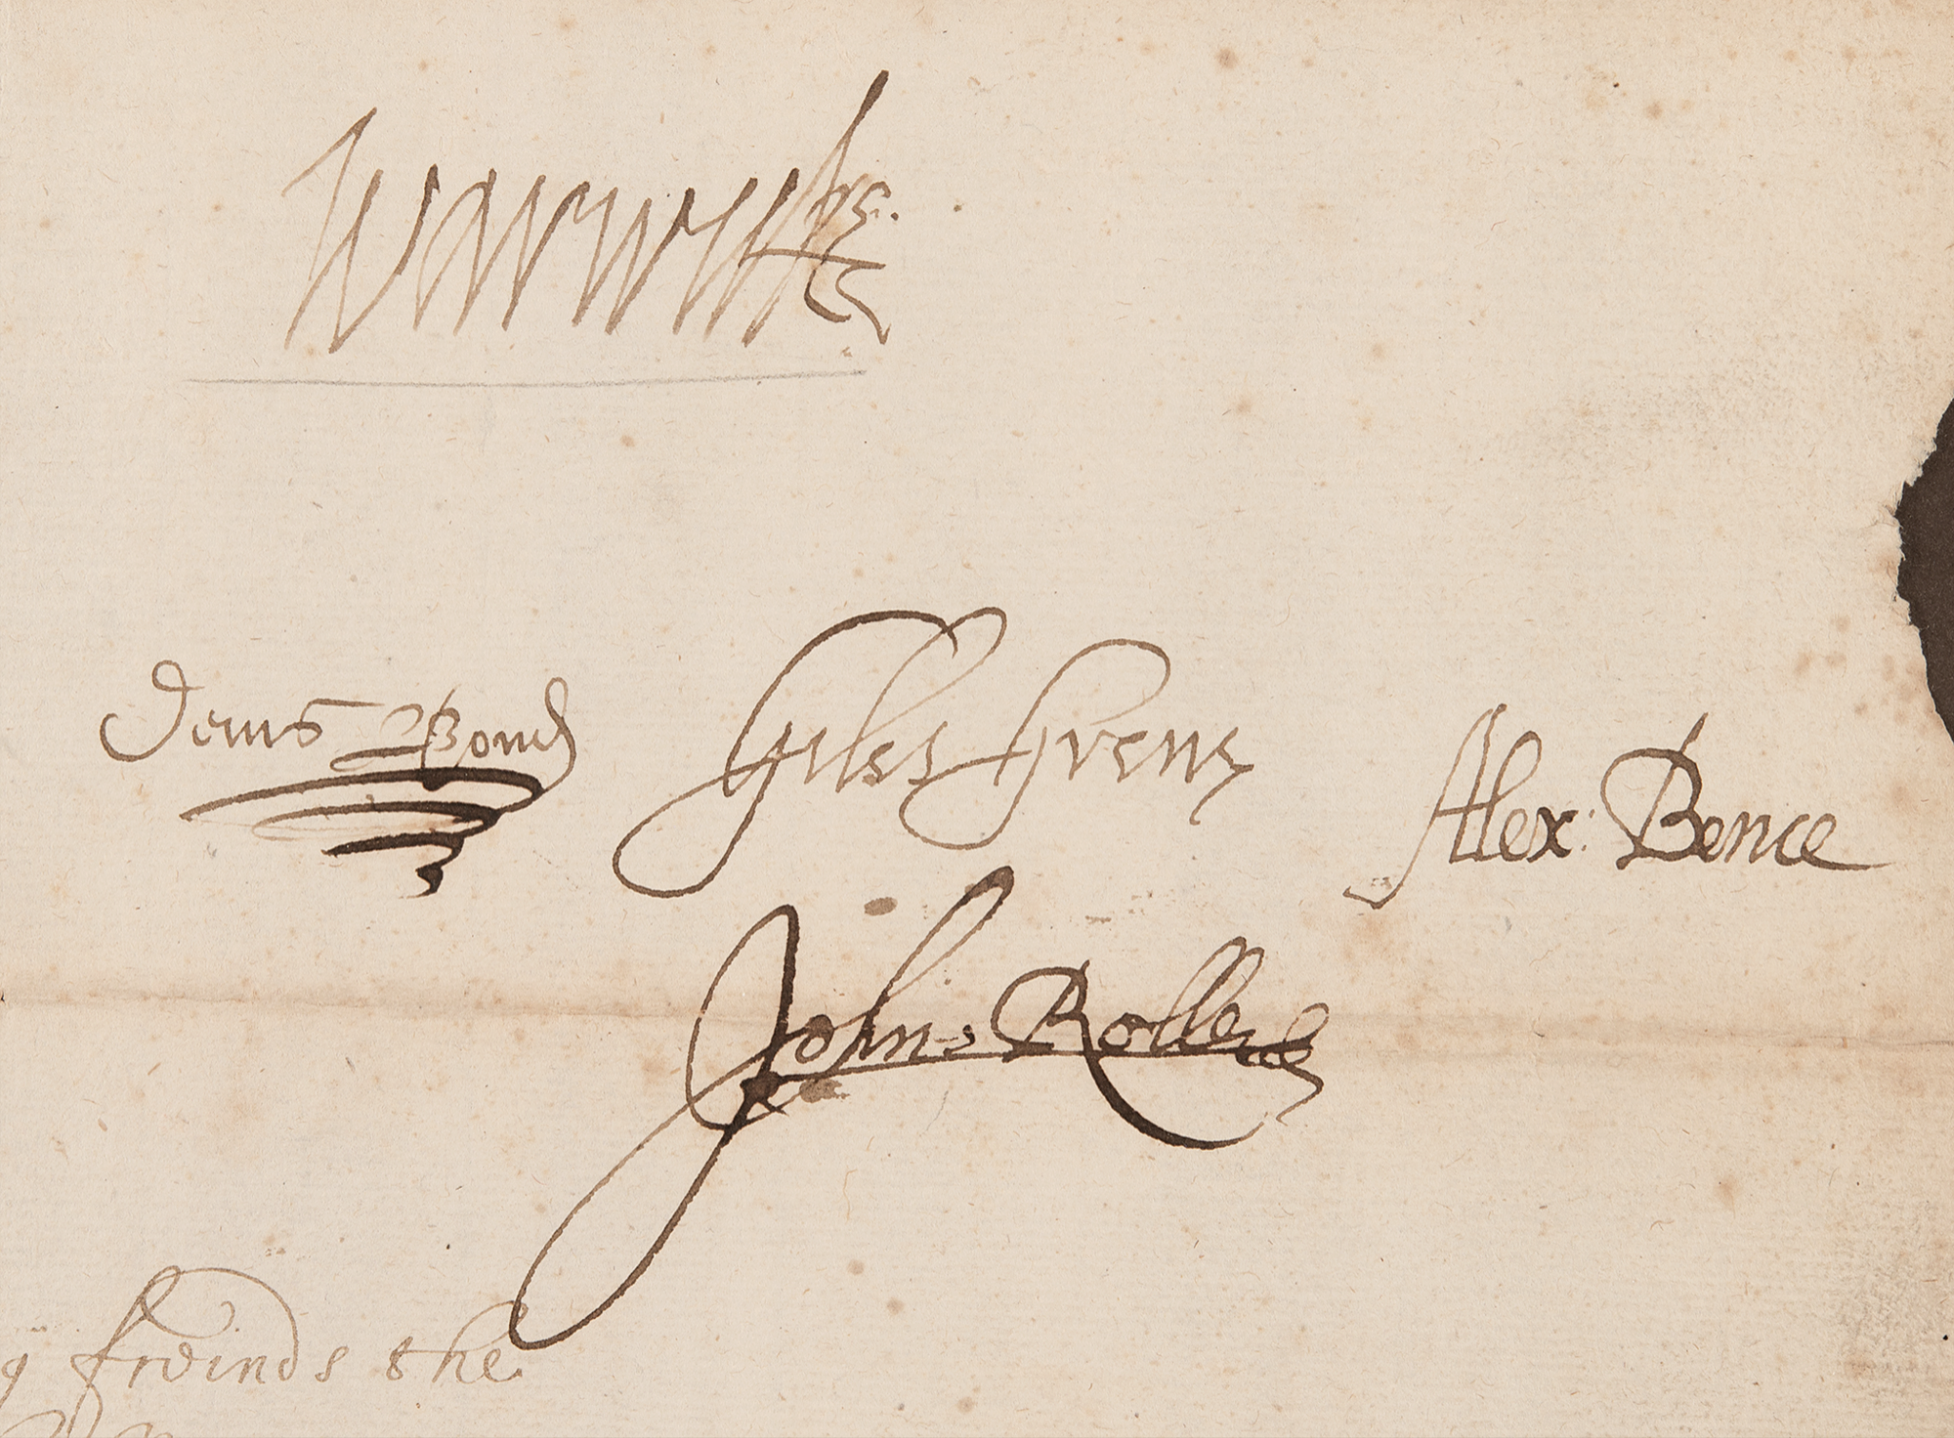 Warwicke
Denis Bond Giles Grene Alex: Bence
John Rolle
freinds the